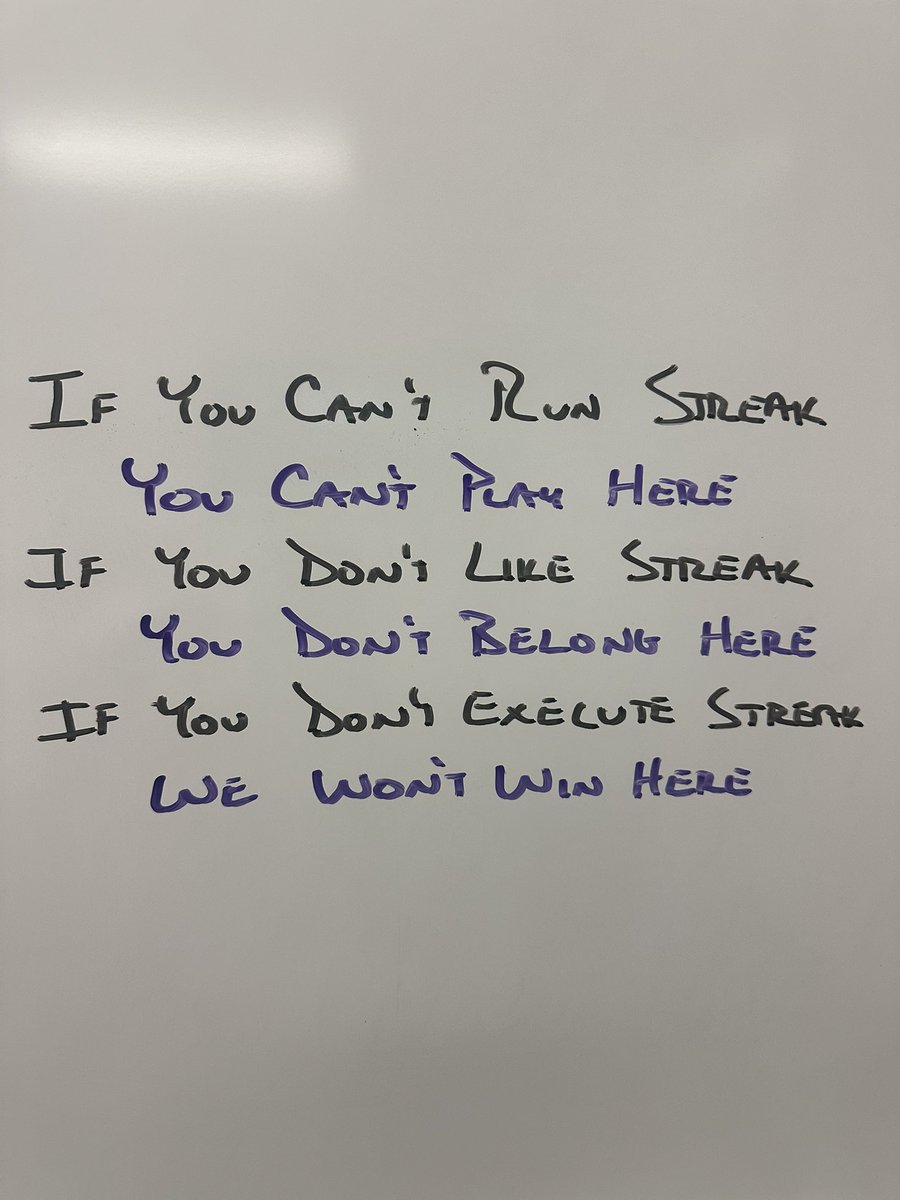 If You Can't Run Streak
You Can't Play Here
If You Don't Like Streak
You Don't Belong Here
If You Don't Execute Streak
We Won't Win Here